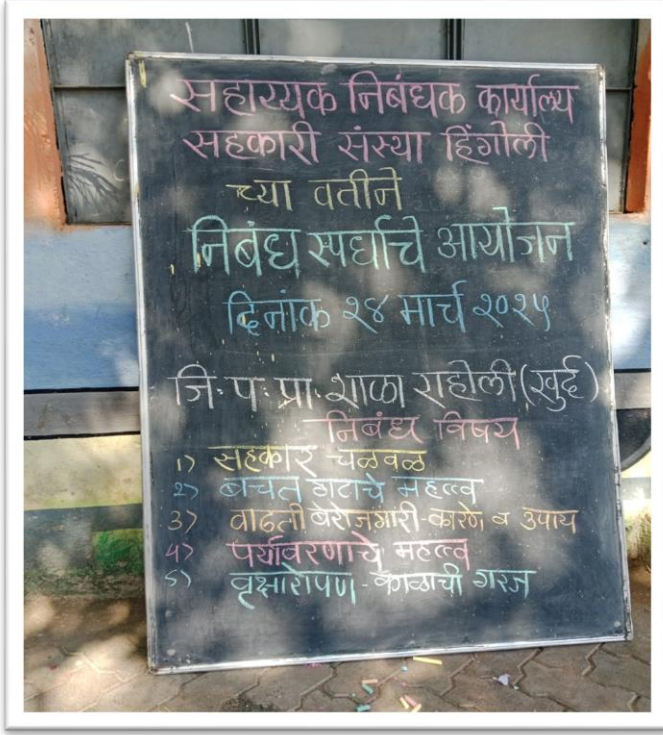 सहाय्यक निबंधक कार्यालय
सहकारी संस्था हिंगोली
च्या वतीने
निबंध स्पर्धाचे आयोजन
दिनांक २४ मार्च २०२५
जि. प. प्रा. शाळा राहोली (खुर्द)
निबंध विषय
1) सहकार चळवळ
2) बचत गटाचे महत्त्व
3) वाढती बेरोजगारी-कारणे व उपाय
4) पर्यावरणाचे महत्त्व
5) वृक्षारोपण - काळाची गरज